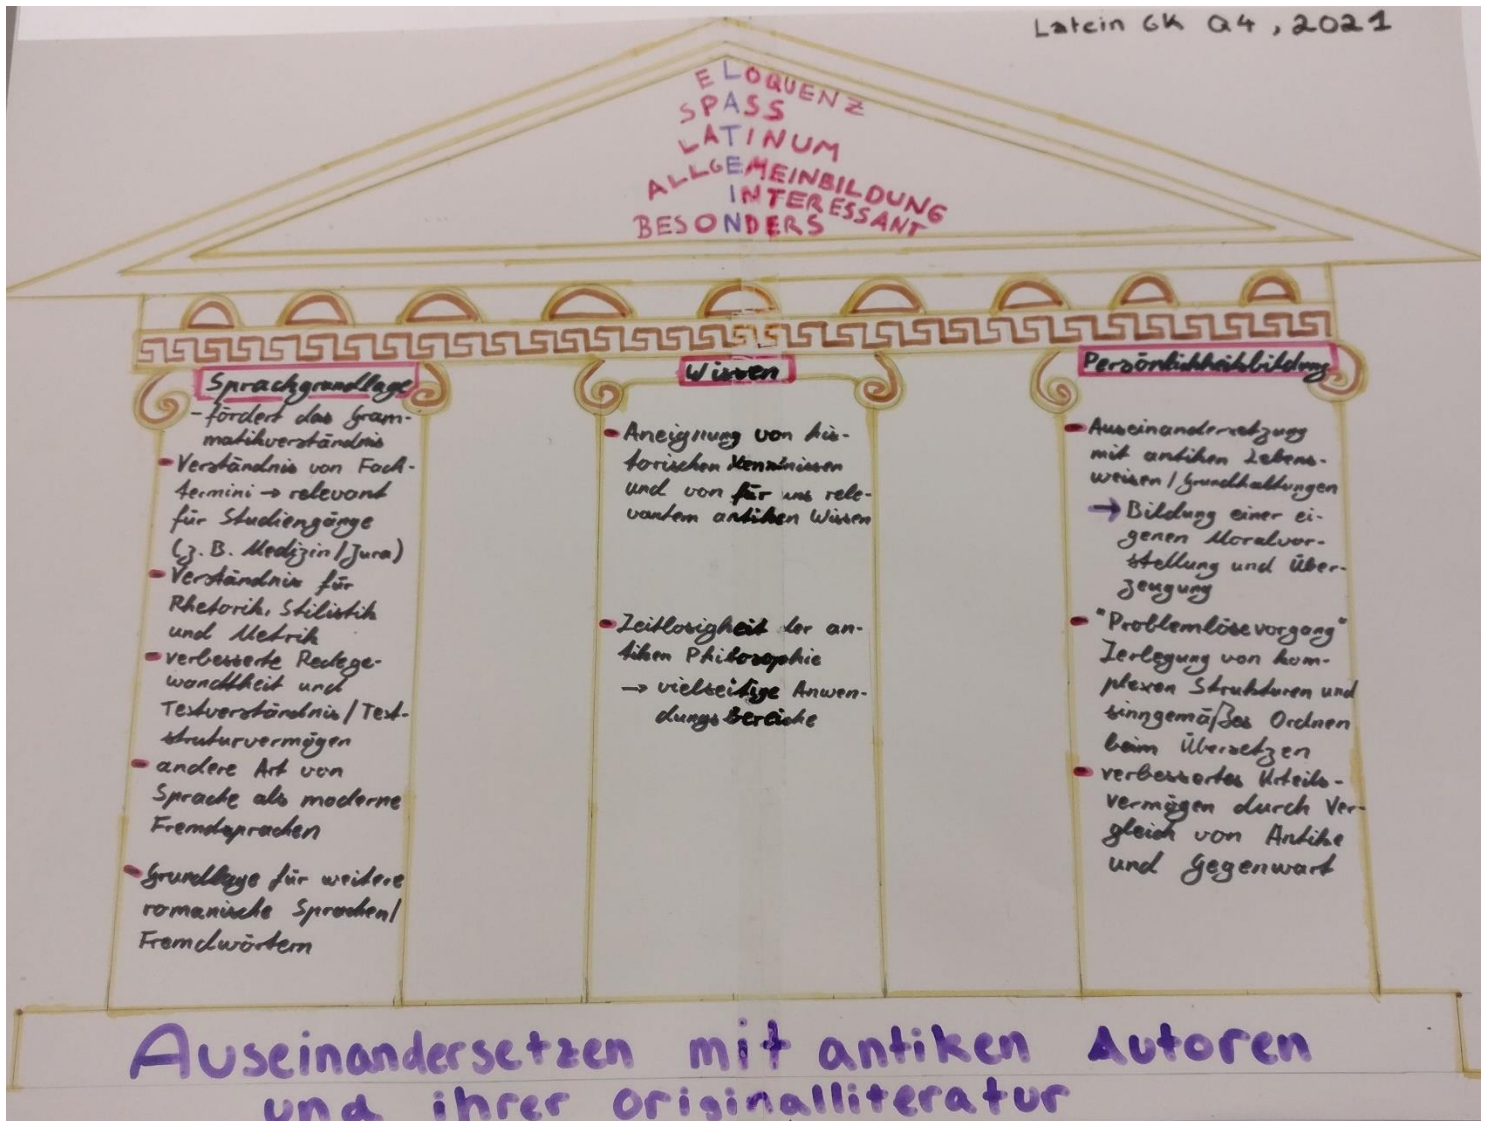 Latein GK Q4, 2021
ELOQUENZ
SPASS
LATINUM
ALLGEMEINBILDUNG
INTERESSANT
BESONDERS
Sprachgrundlage
- fördert das Gram-
matikverständnis
- Verständnis von Fach-
termini → relevant
für Studiengänge
(z. B. Medizin/Jura)
- Verständnis für
Rhetorik, Stilistik
und Metrik
- verbesserte Redege-
wandtheit und
Textverständnis/Text-
struturvermögen
- andere Art von
Sprache als moderne
Fremdsprachen
- Grundlage für weitere
romanische Sprachen/
Fremdwörtern
Wissen
- Aneignung von his-
torischen Kenntnissen
und von für uns rele-
vantem antiken Wissen
- Zeitlosigkeit der an-
tiken Philosophie
→ vielseitige Anwen-
dungsbereiche
Persönlichkeitsbildung
- Auseinandersetzung
mit antiken Lebens-
weisen/Grundhaltungen
→ Bildung einer ei-
genen Moralvor-
stellung und Über-
zeugung
- "Problemlösevorgang"
Zerlegung von kom-
plexen Strukturen und
sinngemäßes Ordnen
beim Übersetzen
- verbessertes Urteils-
vermögen durch Ver-
gleich von Antike
und Gegenwart
Auseinandersetzen mit antiken Autoren
und ihrer originalliteratur